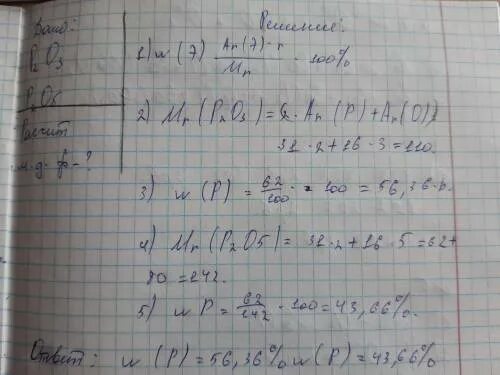 Дано:
P₂O₃
P₂O₅
Расчит
м.д. ф - ?
Решение:
1) w (Э) Ar(Э)·n / Mr · 100%
2) Mr (P₂O₃) = 2 · Ar (P) + Ar(O)3
31 · 2 + 16 · 3 = 110.
3) w (P) = 62/100 · = 100 = 56,36
4) Mr (P₂O5) = 31·2 + 16 · 5 = 62+
80 = 142.
5) w P = 62/142 · 100 = 43,66%.
Ответ: w (P) = 56,36% w (P) = 43,66%